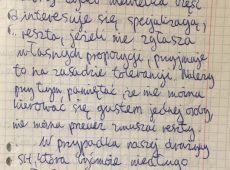 interesuje się specjalizacją,
reszta, jeżeli nie zgłasza
własnych propozycji, przyjmuje
to na zasadzie tolerancji. Należy
przy tym pamiętać, że nie można
kierować się gustem jednej osoby,
nie można przecież zmuszać reszty.
W przypadku naszej drużyny
SH, która